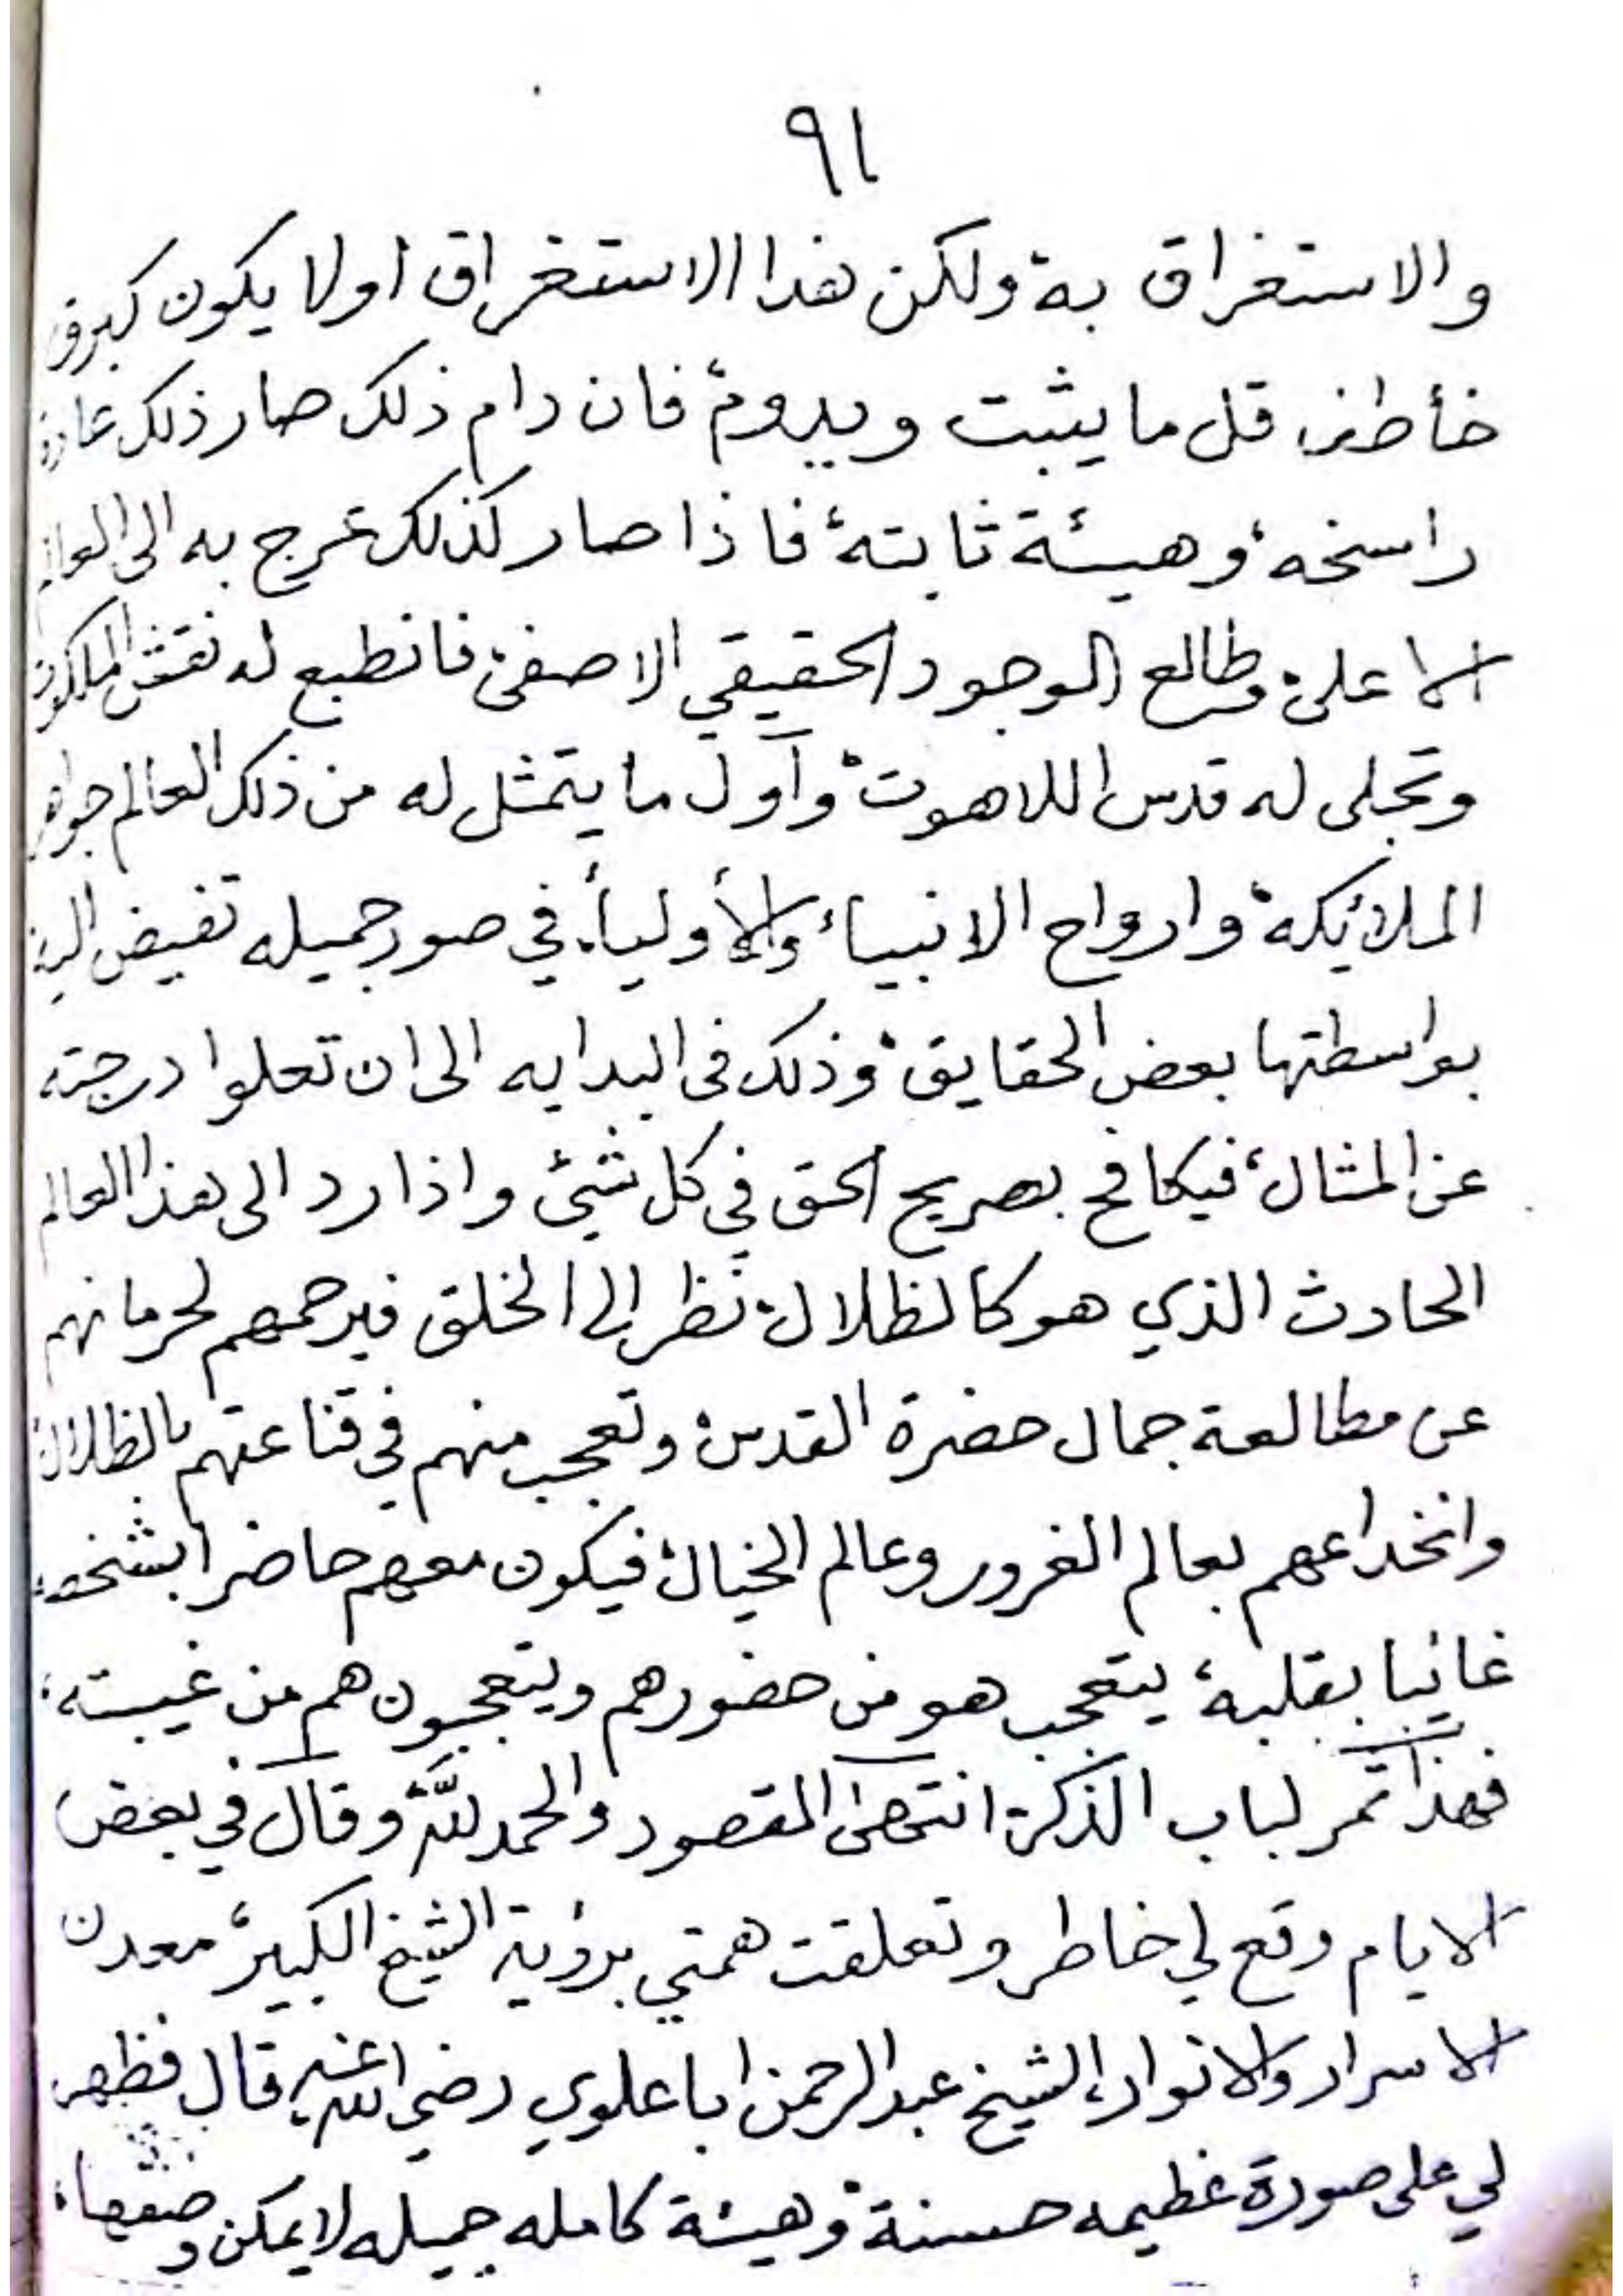 ٩١
والاستغراق به ولكن هذا الاستغراق اولا يكون كبرق
خأطف قل ما يثبت ويدوم فان دام ذلك صار ذلك عادة
راسخه وهيئة ثابته فاذا صار كذلك عرج به الى العالم
الاعلى وطالع الوجود الحقيقي الاصفى فانطبع له نقش الملكوت
وتجلى له قدس اللاهوت وأول ما يتمثل له من ذلك العالم جواهر
الملائيكة وارواح الانبياء والأولياء في صور جميله تفيض اليه
بواسطتها بعض الحقايق وذلك في البدايه الى ان تعلوا درجته
عن المثال فيكافح بصريح الحق في كل شيئ واذا رد الى هذا العالم
الحادث الذي هو كالظلال نظر الى الخلق فيرحمهم لحرمانهم
عن مطالعة جمال حضرة القدس وتعجب منهم في قناعتهم بالظلال
وانخداعهم بعالم الغرور وعالم الخيال فيكون معهم حاضرا بشخصه
غائبا بقلبه يتعجب هو من حضورهم ويتعجبون هم من غيبته
فهذا ثمر لباب الذكر انتهى المقصود والحمد لله وقال في بعض
الايام وقع لي خاطر وتعلقت همتي برؤية الشيخ الكبير معدن
الاسرار والانوار الشيخ عبدالرحمن ابا علوي رضي الله عنه قال فظهر
لي على صورة عظيمه حسنة وهيئة كامله جميله لا يمكن وصفها